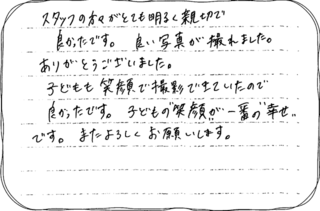 スタッフの方々がとても明るく親切で
良かったです。 良い写真が撮れました。
ありがとうございました。
子どもも笑顔で撮影できていたので
良かったです。 子どもの"笑顔が一番の"幸せ"
です。 またよろしくお願いします。